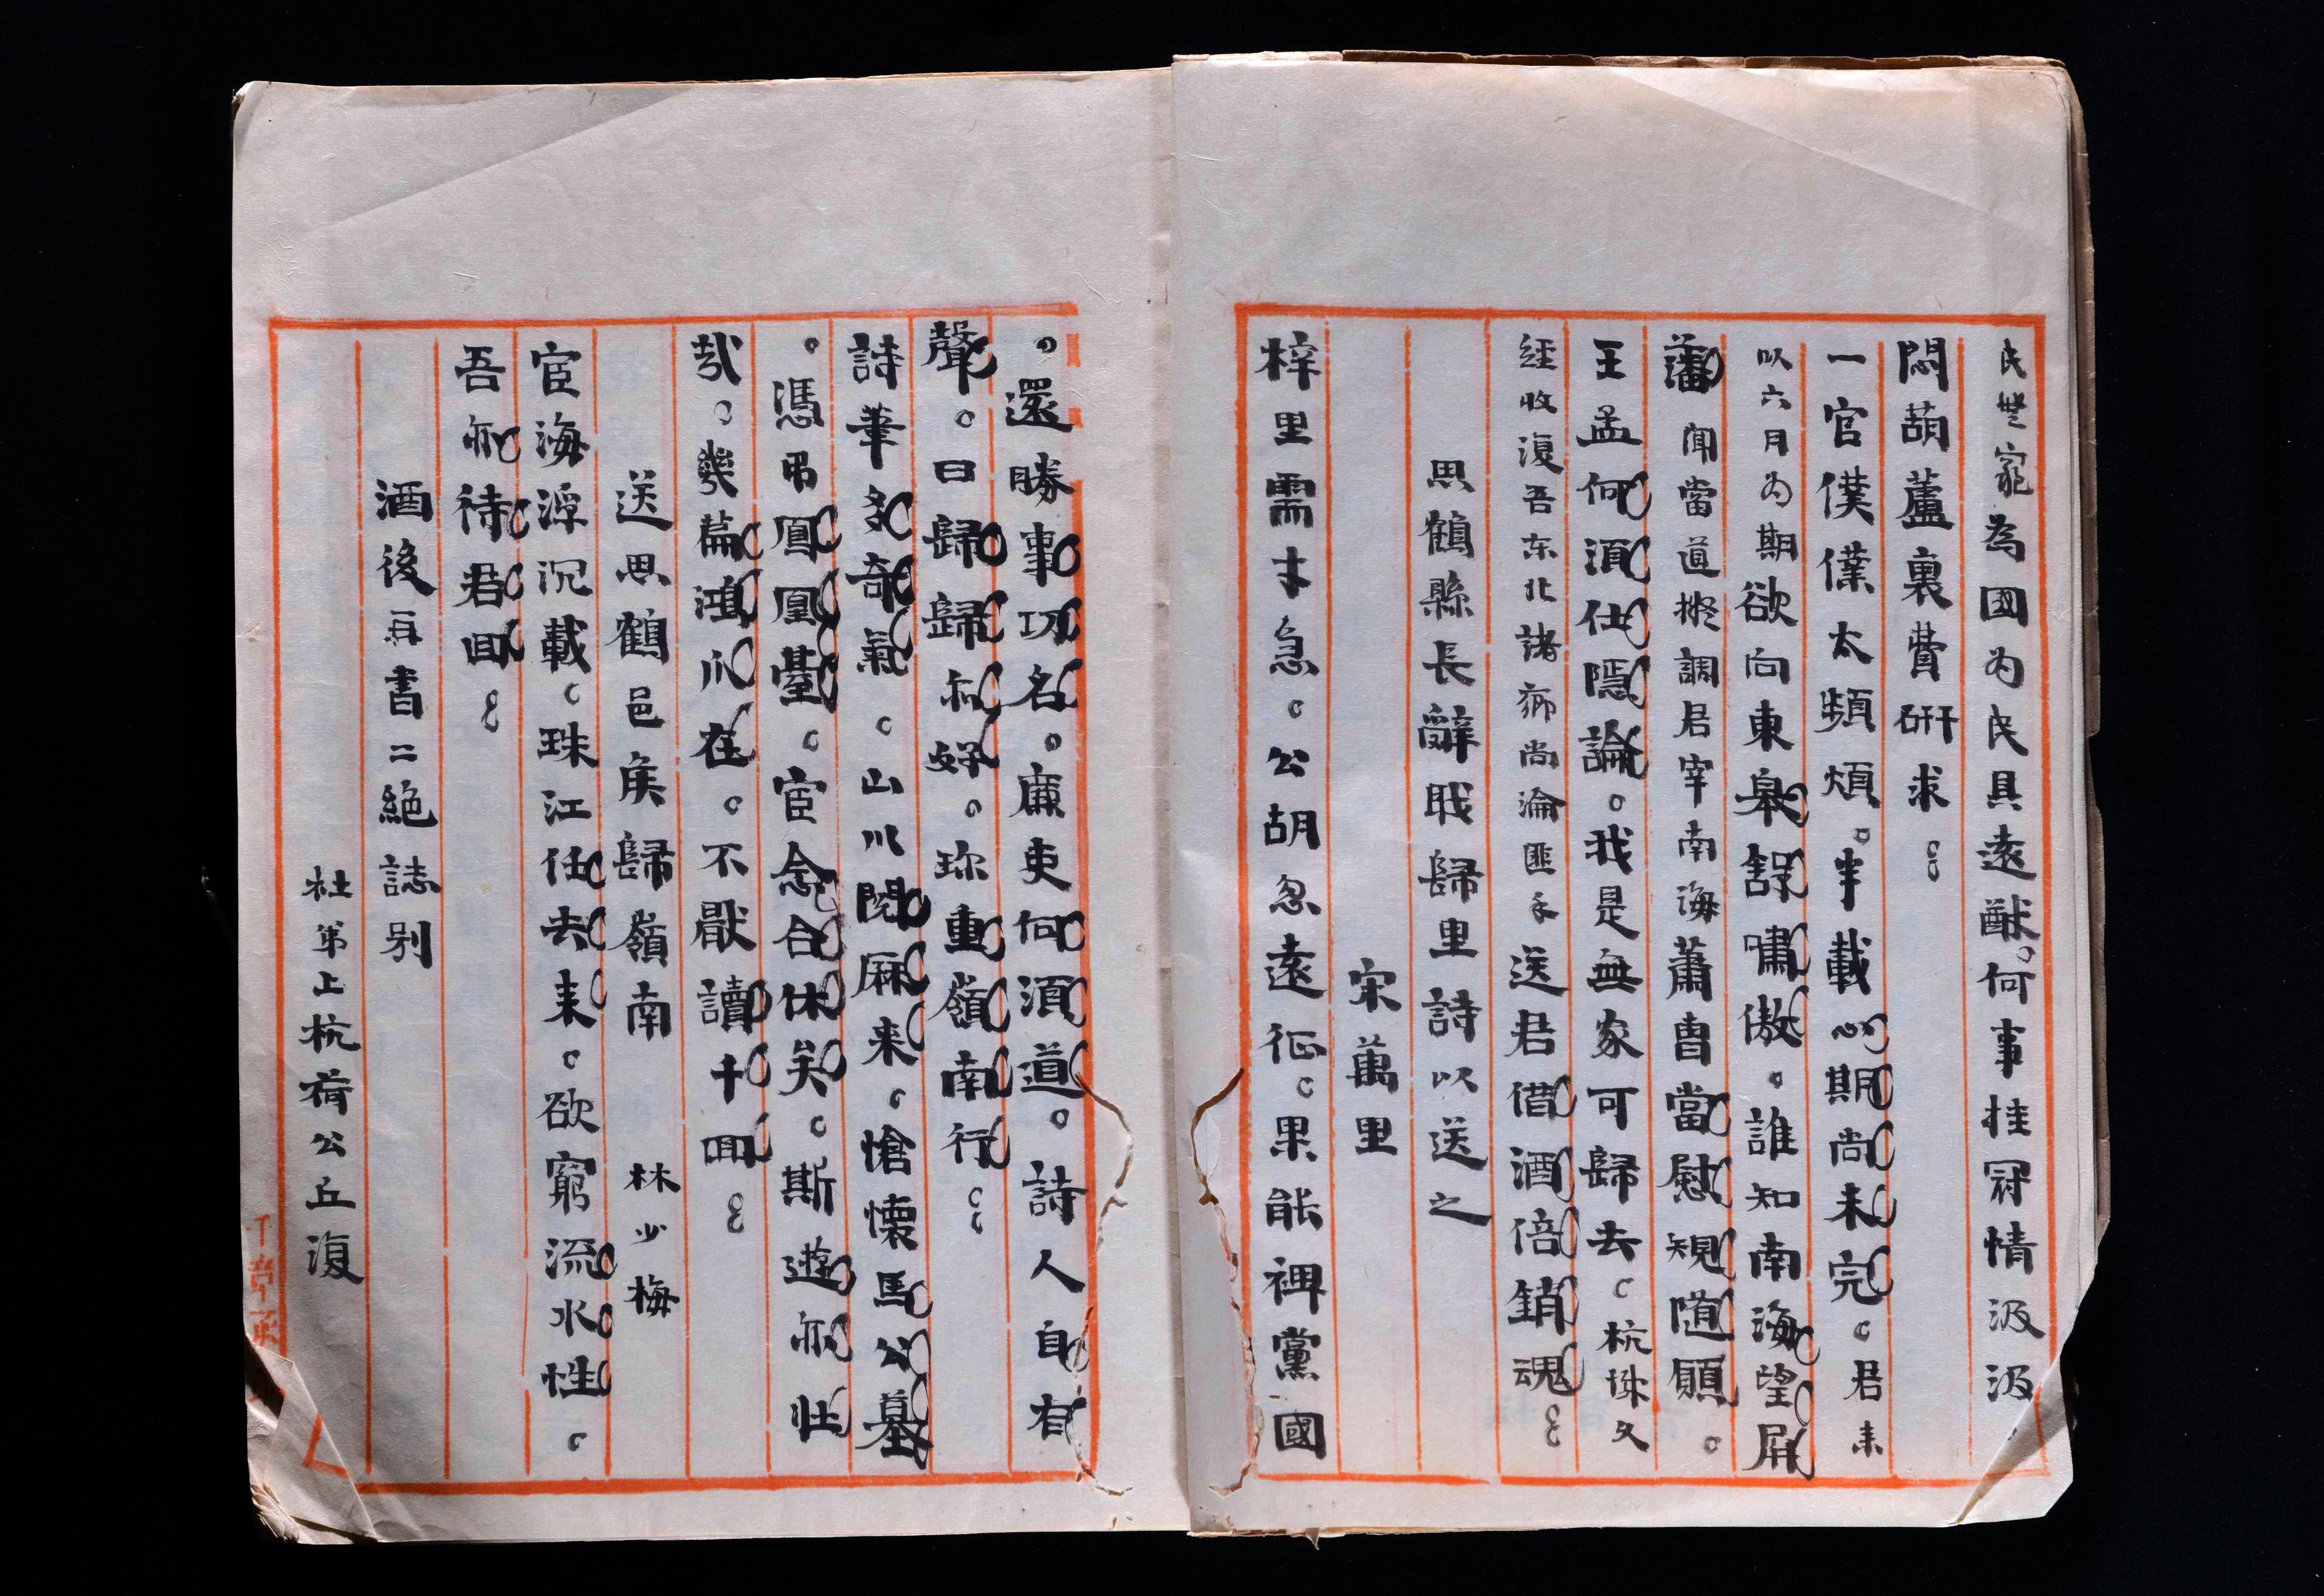 民難寵為國为民具遠猷。何事挂冠情汲汲。
悶葫蘆裏費研求。
一官僕僕太頻煩。半載心期尚未完。君来
以六月为期欲向東皋舒嘯傲。誰知南海望屏
藩聞當道擬調君宰南海蕭曺當慰規随願。
王孟何須仕隱論。我是無家可歸去。杭垜文
經收復吾东北諸鄉尚淪匪手送君借酒倍銷魂
思鶴縣長辭職歸里詩以送之
宋萬里
梓里需才急。公胡忽遠征。果能裨黨國
。還勝事功名。廉吏何須道。詩人自有
聲。日歸歸亦好。珎重嶺南行。
詩筆多奇氣。山川閱厤来。愴懷馬公墓
。憑吊鳳凰臺。宦念合休矣。斯遊亦壯
哉。幾篇鴻爪在。不厭讀千回。
送思鶴邑矦歸嶺南 林少梅
宦海浮沉載。珠江任去来。欲窮流水性。
吾亦待君回。
酒後再書二絶誌别
杜第上杭荷公丘復